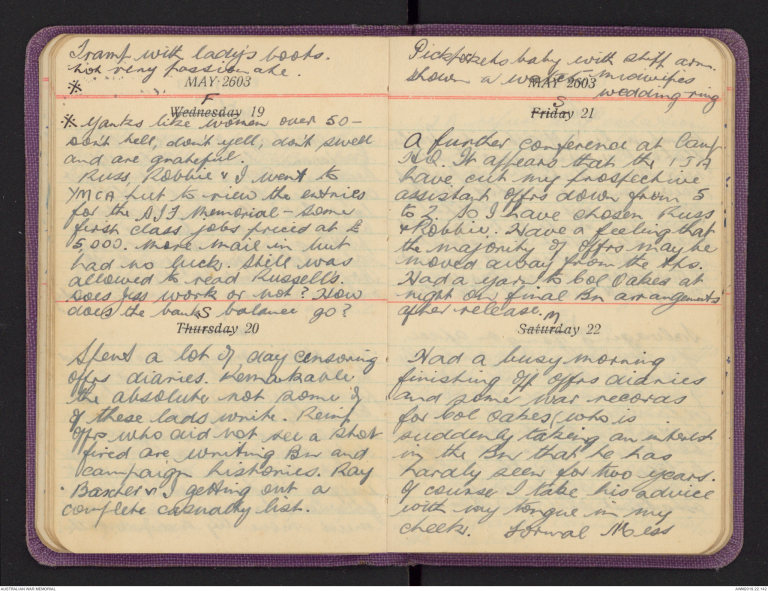 Tramp with lady's boots.
not very passionate.
*
MAY 2603
F
Wednesday 19
* Yanks like women over 50 -
don't tell, don't yell, don't swell
and are grateful.
Russ, Robbie & I went to
YMCA hut to view the entries
for the AIF Memorial - some
first class jobs priced at £
5,000. More mail in but
had no luck. Still was
allowed to read Russell's.
Does Jess work or not? How
does the bank balance go?
S
Thursday 20
Spent a lot of day censoring
offrs diaries. Remarkable
the absolute rot some of
of these lads write. Reinf
Offrs who did not see a shot
fired are writing Bn and
campaign histories. Ray
Baxter & I getting out a
complete casualty list.
Pickpockets baby with stiff arm.
shown a watch - midwifes
wedding ring
MAY 2603
S
Friday 21
A further conference at Camp
H.Q. It appears that the IJA
have cut my prospective
assistant offrs down from 5
to 2. So I have chosen Russ
& Robbie. Have a feeling that
the majority of offrs may be
moved away from the tps.
Had a yarn to Col Oakes at
night on final Bn arrangements
after release.
M
Saturday 22
Had a busy morning
finishing off offrs diaries
and some war records
for Col Oakes (who is
suddenly taking an interest
in the Bn that he has
hardly seen for two years.
Of course I take his advice
with my tongue in my
cheek. Formal Mess
AUSTRALIAN WAR MEMORIAL